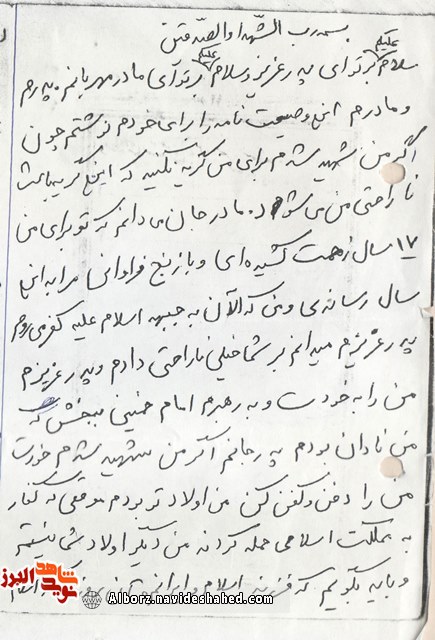 بسم رب الشهدا و الصدقین
سلام علیکم بر تو ای پدر عزیز و سلام علیکم بر تو آی مادر مهربانم. پدرم
و مادرم این وصیت نامه را برای خودم نوشتم چون
اگر من شهید شدم برای من گریه نکنید که این گریه باعث
ناراحتی من می شود. مادر جان می دانم که تو برای من
۱۷ سال زحمت کشیده ای و با رنج فراوانی مرا به این
سال رساندی و من که الآن به جبهه اسلام علیه کفر می روم
پدر عزیزم میدانم بر شما خیلی ناراحتی دادم و پدر عزیزم
من را به خودت و به رهبرم امام خمینی ببخش که
من نادان بودم پدر جانم اگر من شهید شدم خودت
من را دفن و کفن کن من اولاد تو بودم موقعی که کفار
به مملکت اسلامی حمله کردند من دیگر اولاد شما نیستم
و باید بگویم که فرزند اسلام و ایران
شاهد
نوید
البرز
Alborz.navideshahed.com